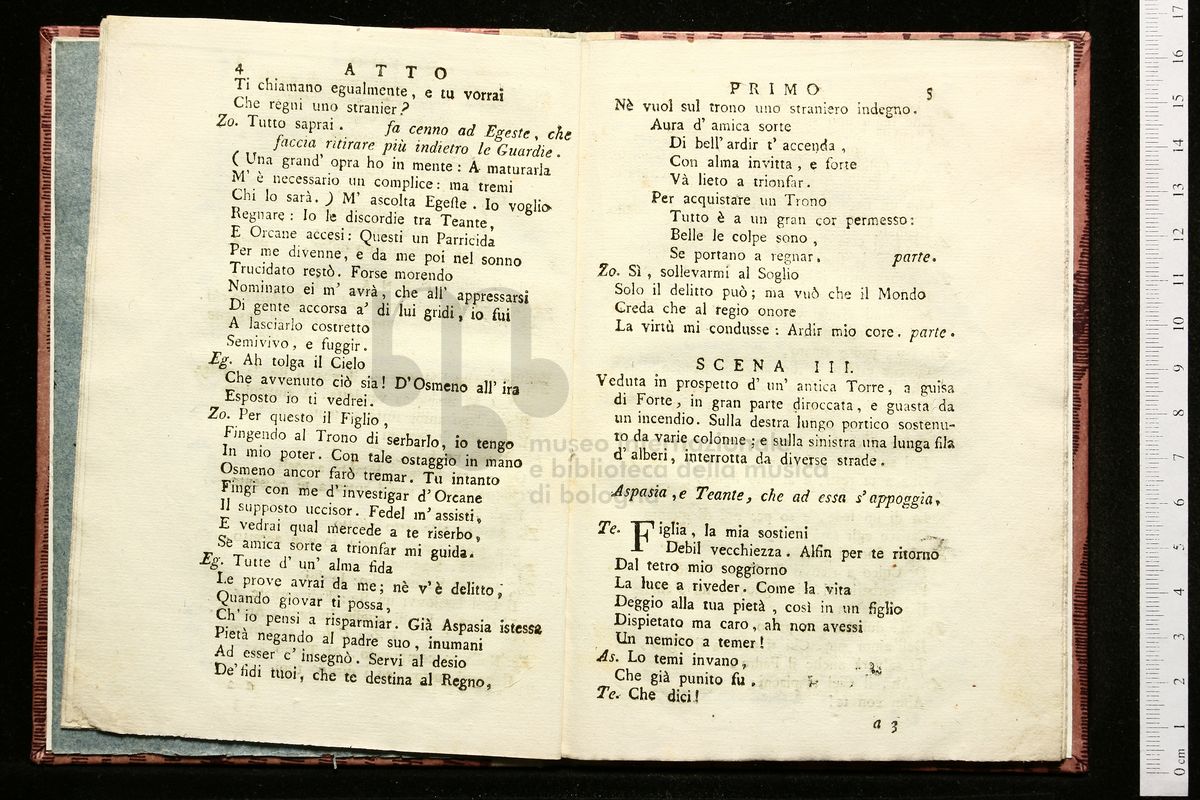 4 ATTO
Ti chiamano egualmente, e tu vorrai
Che regni uno stranier?
Zo. Tutto saprai. fa cenno ad Egeste, che
faccia ritirare più indietro le Guardie.
( Una grand' opra ho in mente: A maturarla
M' è necessario un complice: ma tremi
Chi lo sarà. ) M' ascolta Egeste. Io voglio
Regnare: Io le discordie tra Teante,
E Orcane accesi: Questi un Parricida
Per me divenne, e da me poi nel sonno
Trucidato restò. Forse morendo
Nominato ei m' avrà, che all' appressarsi
Di gente accorsa a di lui gridi, io fui
A lasciarlo costretto
Semivivo, e fuggir.
Eg. Ah tolga il Cielo
Che avvenuto ciò sia! D'Osmeno all' ira
Esposto io ti vedrei.
Zo. Per questo il Figlio,
Fingendo al Trono di serbarlo, io tengo
In mio poter. Con tale ostaggio in mano
Osmeno ancor farò tremar. Tu intanto
Fingi con me d' investigar d' Orcane
Il supposto uccisor. Fedel m' assisti,
E vedrai qual mercede a te riserbo,
Se amica sorte a trionfar mi guida.
Eg. Tutte d' un' alma fida
Le prove avrai da me; nè v' è delitto,
Quando giovar ti possa,
Ch' io pensi a risparmiar. Già Aspasia istessa
Pietà negando al padre suo, inumani
Ad esser c' insegnò. Servi al desio
De' fidi tuoi, che te destina al Regno,
PRIMO 5
Nè vuol sul trono uno straniero indegno.
Aura d' amica sorte
Di bell' ardir t' accenda,
Con alma invitta, e forte
Và lieto a trionfar.
Per acquistare un Trono
Tutto è a un gran cor permesso:
Belle le colpe sono,
Se portano a regnar. parte.
Zo. Sì, sollevarmi al Soglio
Solo il delitto può; ma vuò che il Mondo
Creda che al regio onore
La virtù mi condusse: Ardir mio core. parte.
SCENA III.
Veduta in prospetto d' un' antica Torre, a guisa
di Forte, in gran parte diroccata, e guasta da
un incendio. Sulla destra lungo portico sostenu-
to da varie colonne; e sulla sinistra una lunga fila
d' alberi, interrotta da diverse strade.
Aspasia, e Teante, che ad essa s' appoggia.
Te. Figlia, la mia sostieni
Debil vecchiezza. Alfin per te ritorno
Dal tetro mio soggiorno
La luce a riveder. Come la vita
Deggio alla tua pietà, così in un figlio
Dispietato ma caro, ah non avessi
Un nemico a temer!
As. Lo temi invano,
Che già punito fu.
Te. Che dici!
a 3
museo internazionale
e biblioteca della musica
di bologna
17
16
15
14
13
12
11
10
9
8
7
6
5
4
3
2
1
0 cm